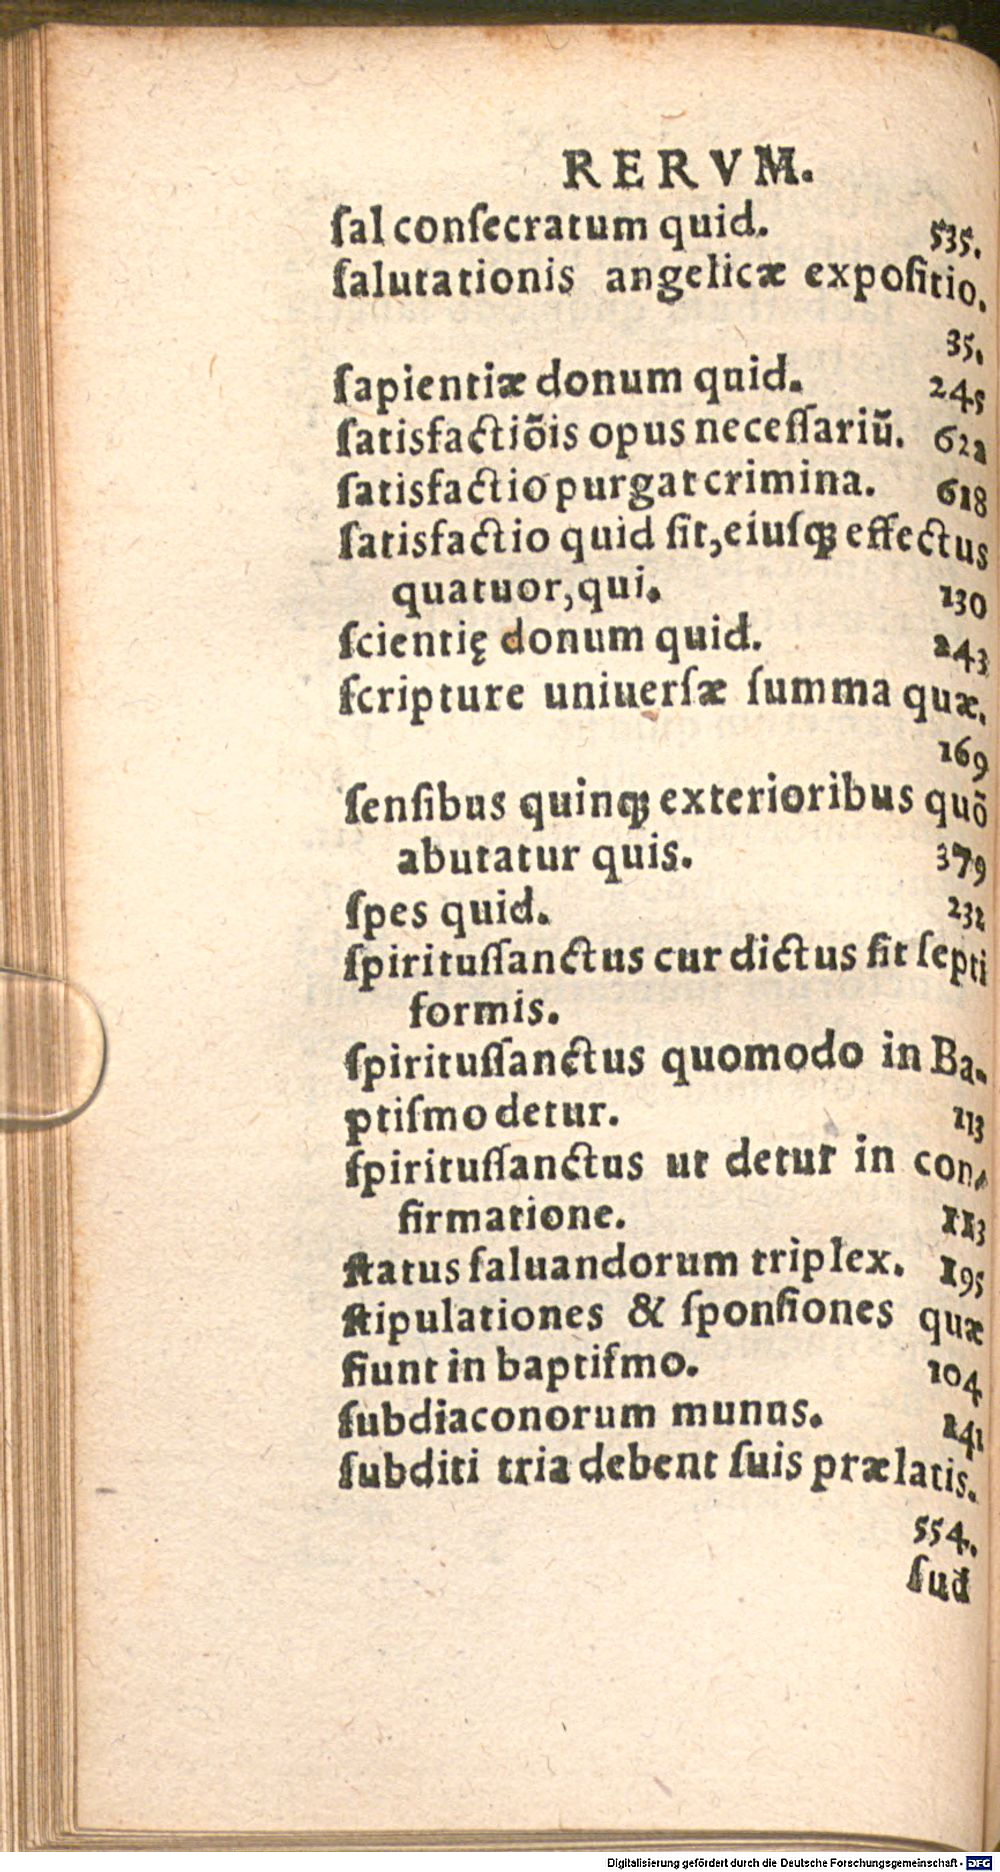 RERVM.
ſal conſecratum quid. 535.
ſalutationis angelicæ expoſitio.
35.
ſapientiæ donum quid. 245
ſatisfactiõis opus neceſſariũ. 622
ſatisfactio purgat crimina. 618
ſatisfactio quid ſit, eiuſqꝫ effectus
quatuor, qui. 130
ſcientię donum quid. 243
ſcripture uniuerſæ ſumma quæ.
169
ſenſibus quinqꝫ exterioribus quõ
abutatur quis. 379
ſpes quid. 232
ſpirituſſanctus cur dictus ſit ſepti
formis.
ſpirituſſanctus quomodo in Ba-
ptiſmo detur. 113
ſpirituſſanctus ut detur in con-
firmatione. 113
ſtatus ſaluandorum triplex. 195
ſtipulationes & ſponſiones quæ
fiunt in baptiſmo. 104
ſubdiaconorum munus. 241
ſubditi tria debent ſuis prælatis.
554.
ſud
Digitalisierung gefördert durch die Deutsche Forschungsgemeinschaft - DFG